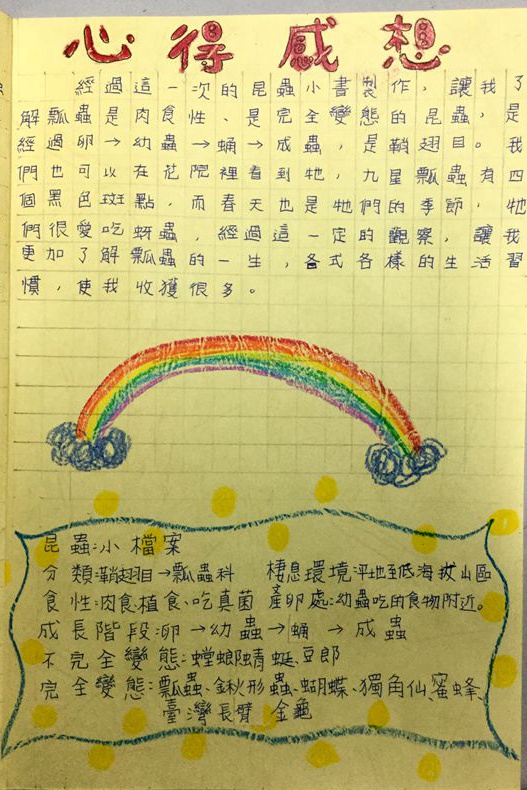 心得感想
經過這一次的昆蟲小書製作，讓我了
解瓢蟲是肉食性、是完全變態的昆蟲，是
經過卵→幼蟲→蛹→成蟲，是鞘翅目。我
們也可以在花院裡看到牠，九星瓢蟲有四
個黑色斑點，而春天也是牠們的季節，牠
們很愛吃蚜蟲，經過這一定的觀察，讓我
更加了解瓢蟲的一生，各式各樣的生活習
慣，使我收獲很多。
昆蟲小檔案
分類：鞘翅目→瓢蟲科 棲息環境：平地至低海拔山區
食性：肉食、植食、吃真菌 產卵處：幼蟲吃的食物附近。
成長階段：卵→幼蟲→蛹→成蟲
不完全變態：螳螂、蜻蜓、豆郎
完全變態：瓢蟲、鍬形蟲、蝴蝶、獨角仙、蜜蜂、
臺灣長臂金龜